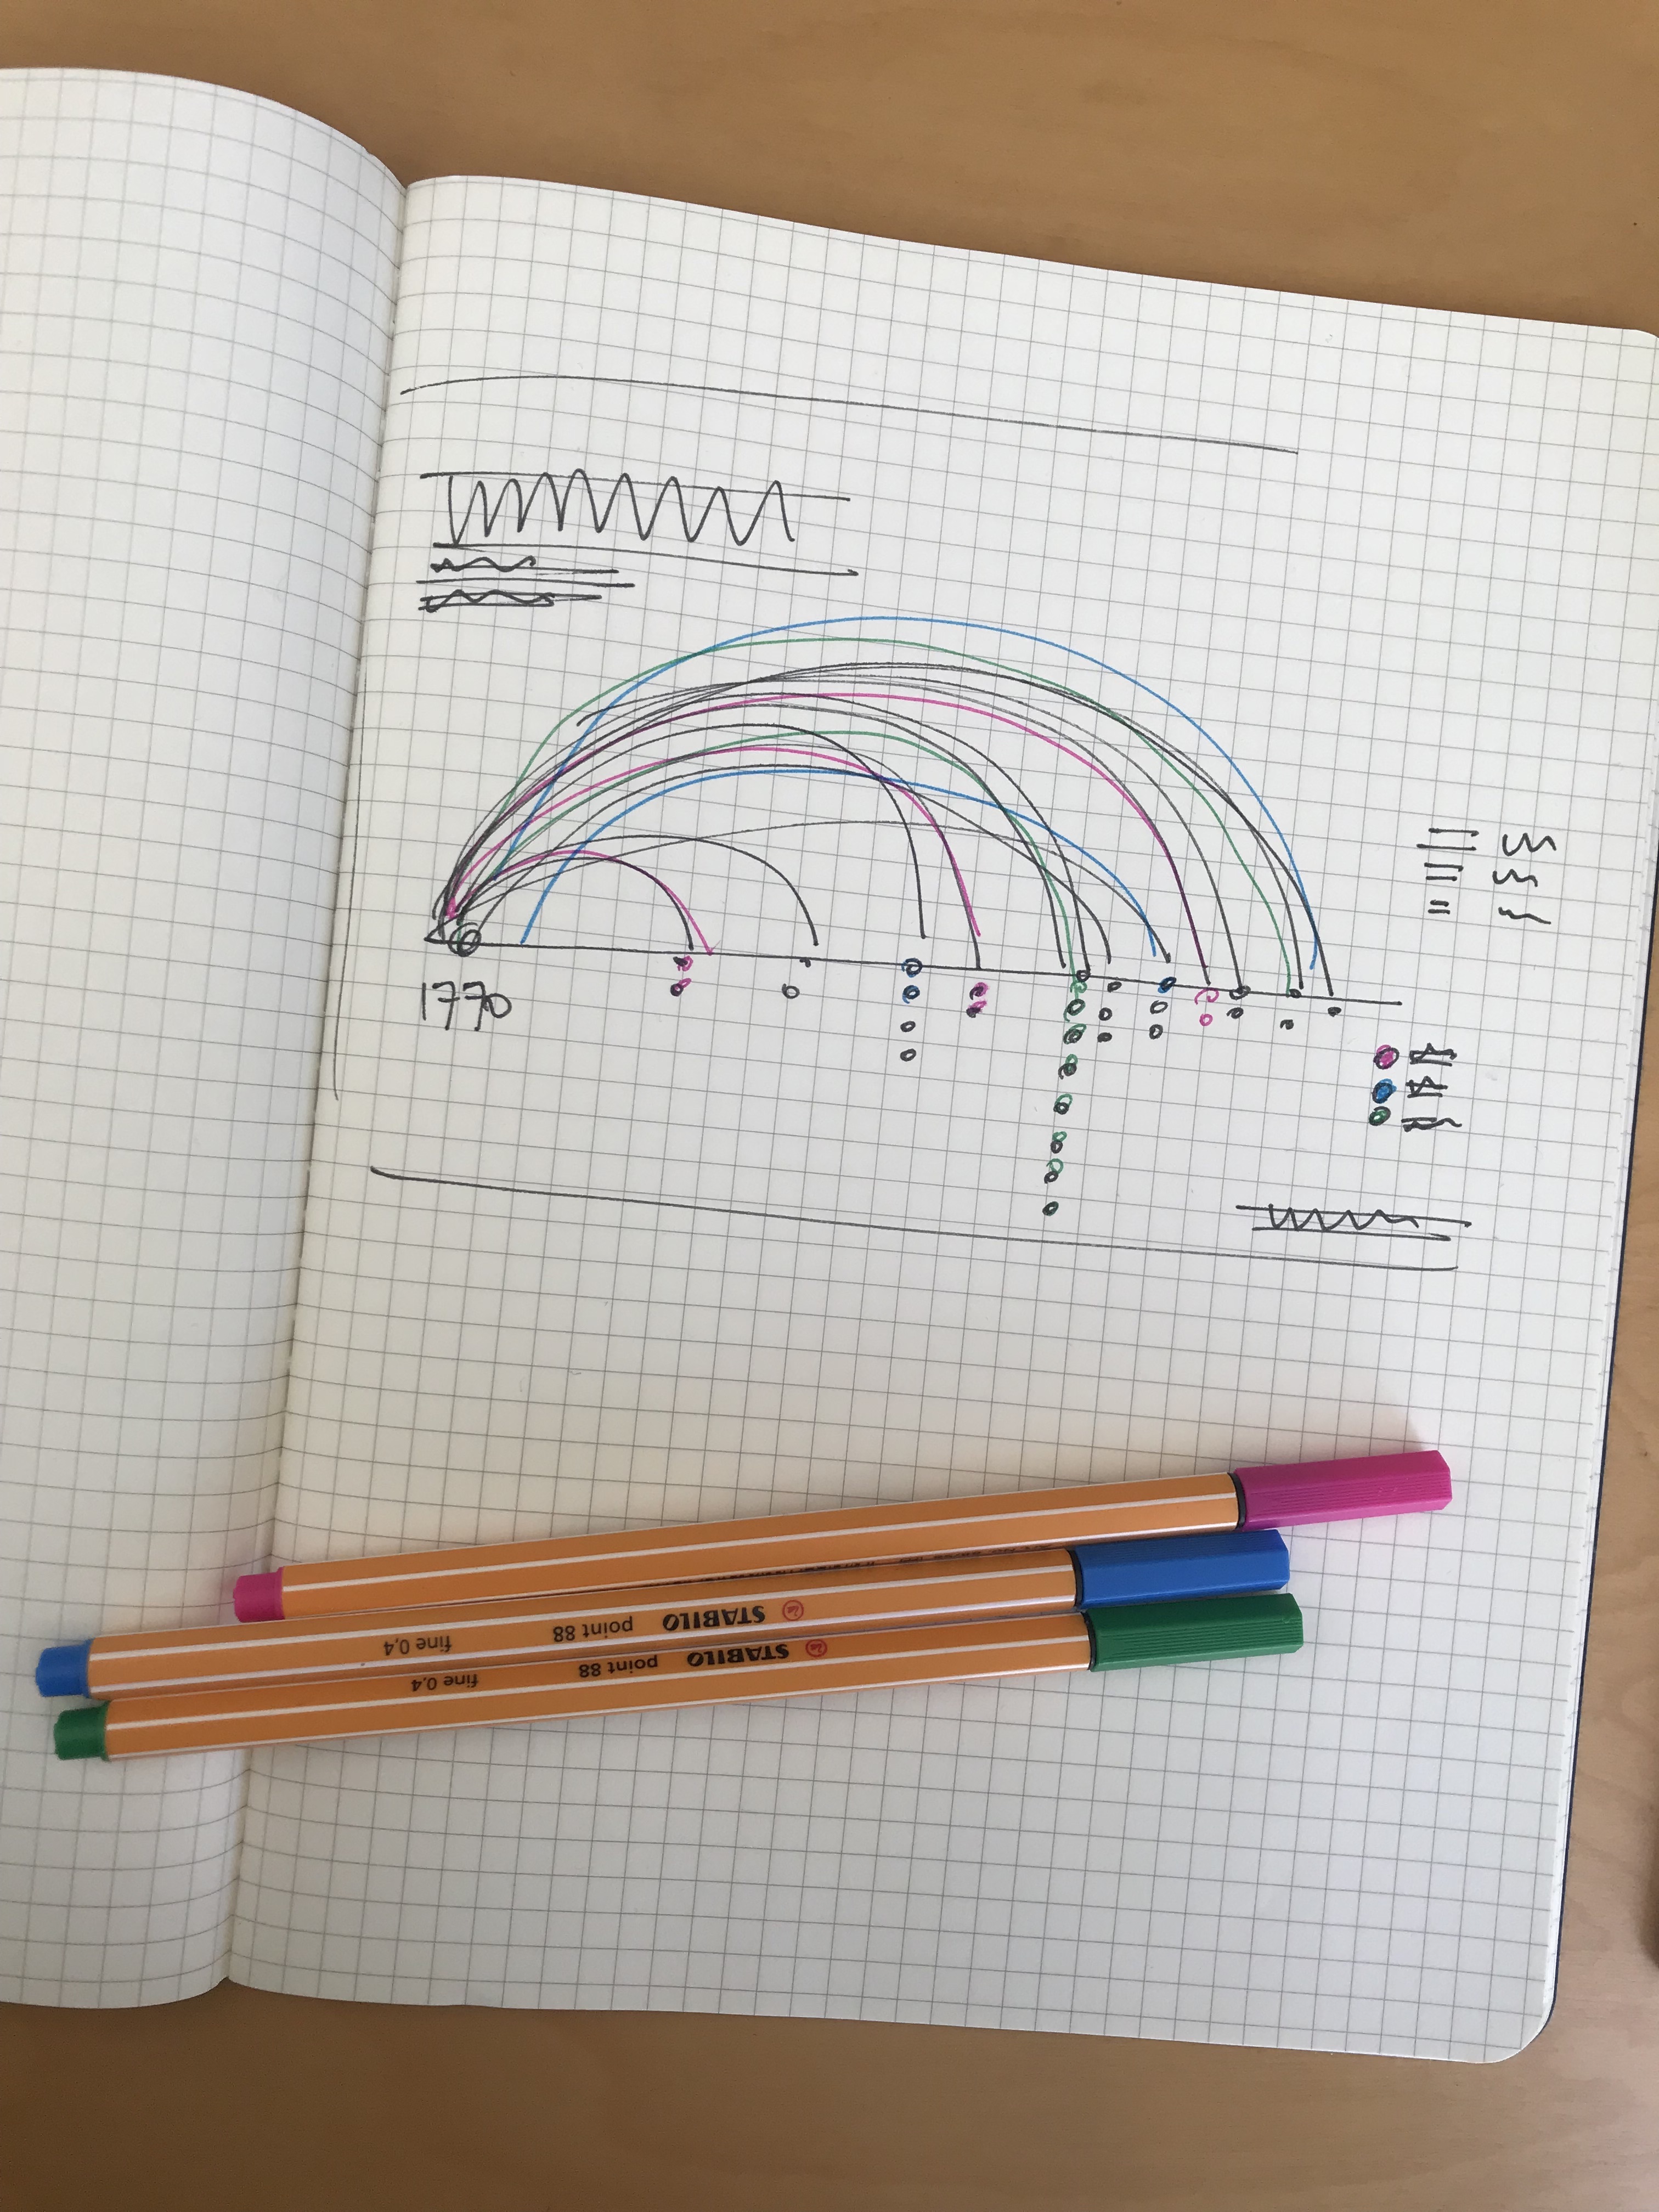 1770
STABILO point 88 fine 0,4
STABILO point 88 fine 0,4